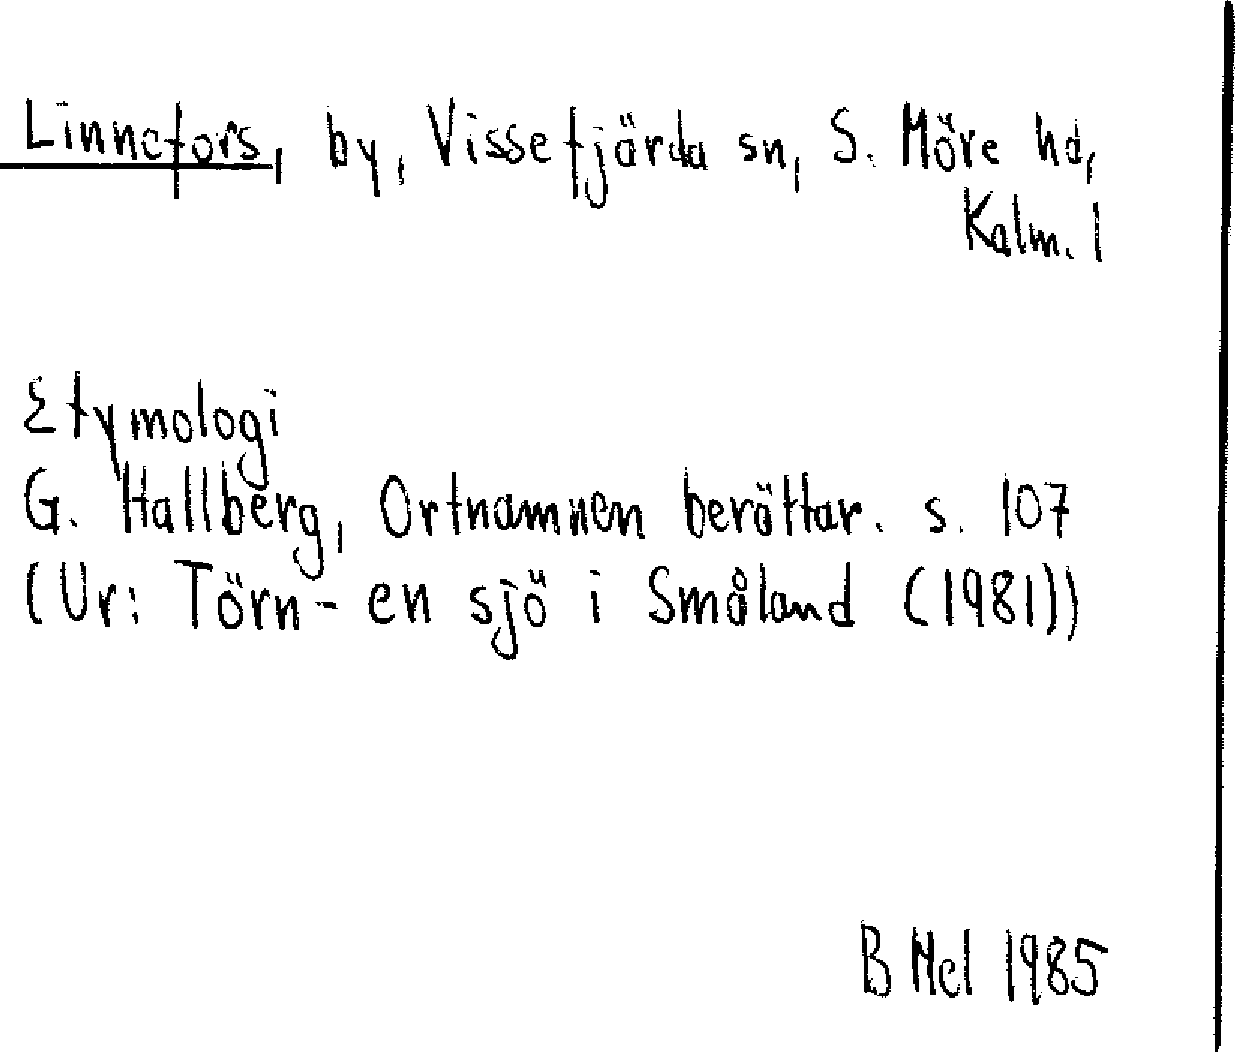 Linnefors, by, Vissefjärda sn, S. Möre hd,
Kalm. l
Etymologi
G. Hallberg, Ortnamnen berättar. s. 107
(Ur: Törn - en sjö i Småland (1981))
B Mel 1985